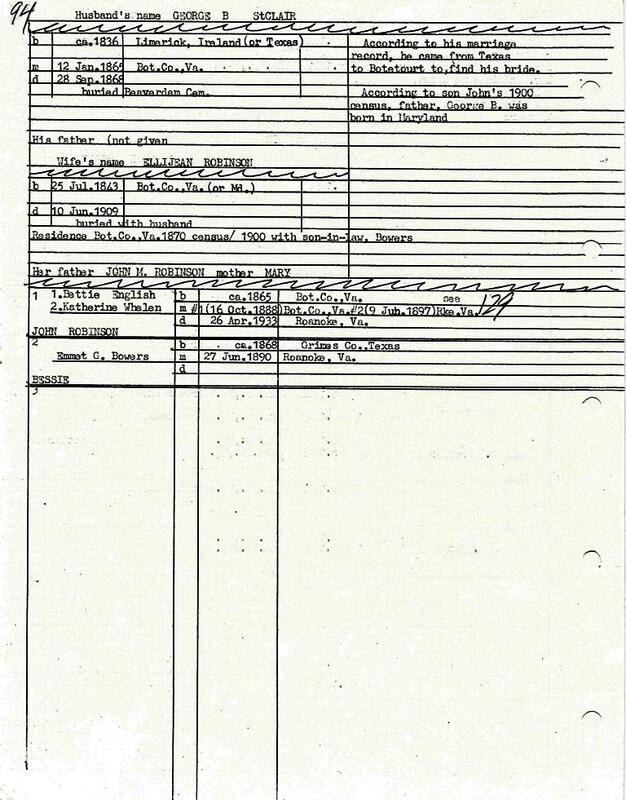 94
Husband's name GEORGE B StCLAIR
b ca.1836 Limerick, Ireland(or Texas)
According to his marriage
record, he came from Texas
to Botetourt to,find his bride.
m 12 Jan.1865 Bot.Co.,Va.
d 28 Sep.1868
buried Beaverdam Cem.
According to son John's 1900
census, father, George B. was
born in Maryland
His father (not given
Wife's name ELLIJEAN ROBINSON
b 25 Jul.1843 Bot.Co.,Va.(or Md.)
d 10 Jun.1909
buried with husband
Residence Bot.Co.,Va.1870 census/ 1900 with son-in-law, Bowers
Her father JOHN M. ROBINSON mother MARY
1 1.Bettie English b ca.1865 Bot.Co.,Va. see 129
2.Katherine Whelen m #1(16 Oct.1888)Bot.Co.,Va.#2(9 Juh.1897)Rke.Va.
d 26 Apr.1933 Roanoke, Va.
JOHN ROBINSON
2 b ca.1868 Grimes Co.,Texas
Emmet G. Bowers m 27 Jun.1890 Roanoke, Va.
d
BESSIE
3